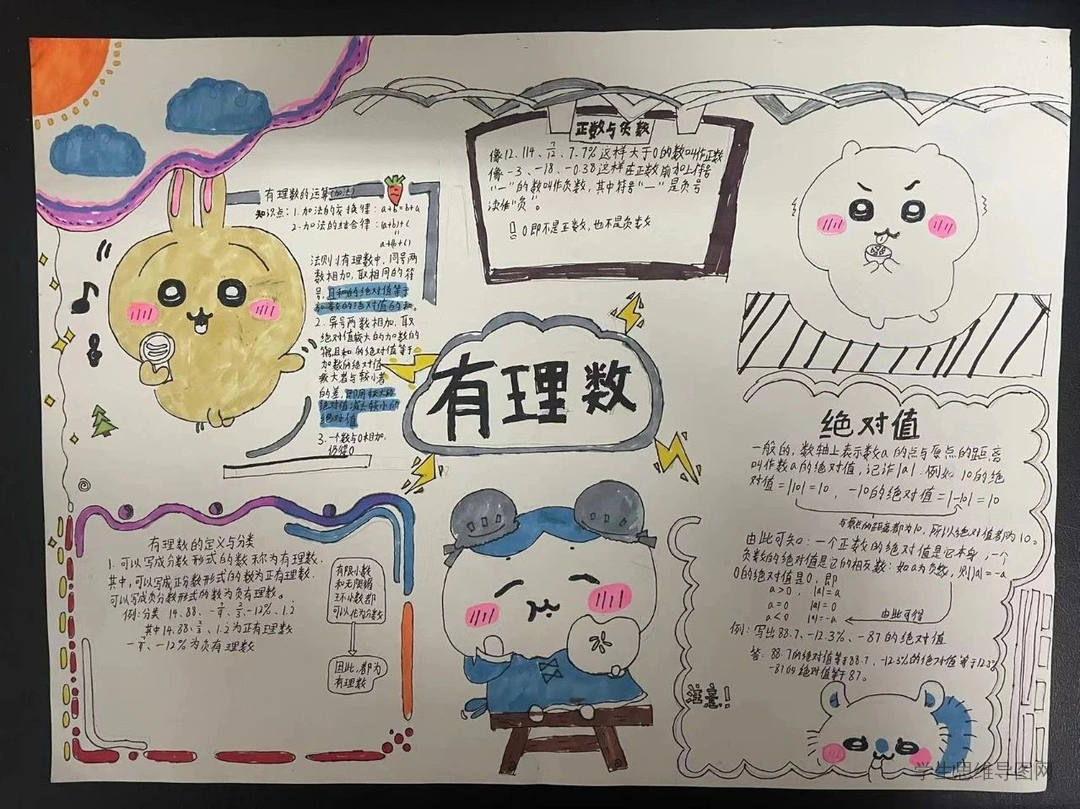 有理数的运算(加法)
知识点：1.加法的交换律：a+b=b+a
2.加法的结合律：(a+b)+c
=
a+(b+c)
法则1.有理数中，同号两
数相加，取相同的符
号，且和的绝对值等于
加数的绝对值的和。
2.异号两数相加，取
绝对值较大的加数的
符号，且和的绝对值等于
加数的绝对值
较大者与较小者
的差，即用较大的
绝对值减去较小的
绝对值
3.一个数与0相加，
仍得0
正数与负数
像12、114、7.7%这样大于0的数叫作正数
像-3、-18、-0.38这样在正数前加上符号
“-”的数叫作负数，其中符号“-”是负号
读作“负”。
0即不是正数，也不是负数
有理数
绝对值
一般的，数轴上表示数a的点与原点的距离
叫作数a的绝对值，记作|a|.例如10的绝
对值=|10|=10，-10的绝对值=|-10|=10
与原点的距离都为10，所以绝对值都为10。
由此可知：一个正数的绝对值是它本身，一个
负数的绝对值是它的相反数：如a为负数，则|a|=-a
0的绝对值是0，即
a>0，|a|=a
a=0 |a|=0
a<0 |a|=-a
由此可得
例：写出88.7、-12.3%、-87的绝对值
答：88.7的绝对值等于88.7，-12.3%的绝对值等于12.3%
-87的绝对值等于87。
注意！
有理数的定义与分类
1.可以写成分数形式的数称为有理数.
其中，可以写成正分数形式的数为正有理数，
可以写成负分数形式的数为负有理数。
例：分类 14.88、-12%、1.2
其中14.88、1.2为正有理数
-12%为负有理数
有限小数
和无限循
环小数都
可以化为分数
因此，都为
有理数
学生思维导图网